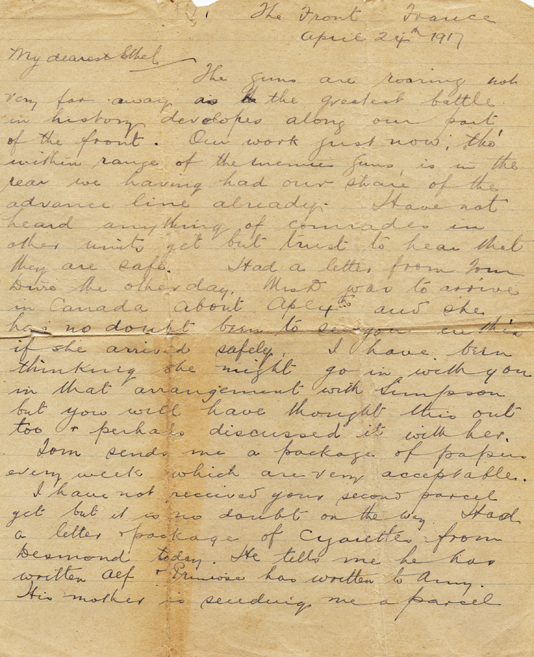 The Front France
April 24th 1917
My dearest Ethel
The guns are roaring not
very far away as the greatest battle
in history developes along our part
of the front. Our work just now, tho'
within range of the enemies guns, is in the
rear we having had our share of the
advance line already. Have not
heard anything of comrades in
other units yet but trust to hear that
they are safe. Had a letter from Tom
the other day. was to arrive
in Canada about Apl and she
has no doubt been to see you ere this
if she arrived safely. I have been
thinking she might go in with you
in that arrangement with Simpson
but you will have thought this out
too & perhaps discussed it with her.
Tom sends me a package of papers
every week which are very acceptable.
I have not received your second parcel
yet but it is no doubt on the way. Had
a letter & package of Cigarettes from
Desmond today. He tells me he has
written Alf & Primrose has written to Amy.
His mother is sending me a parcel